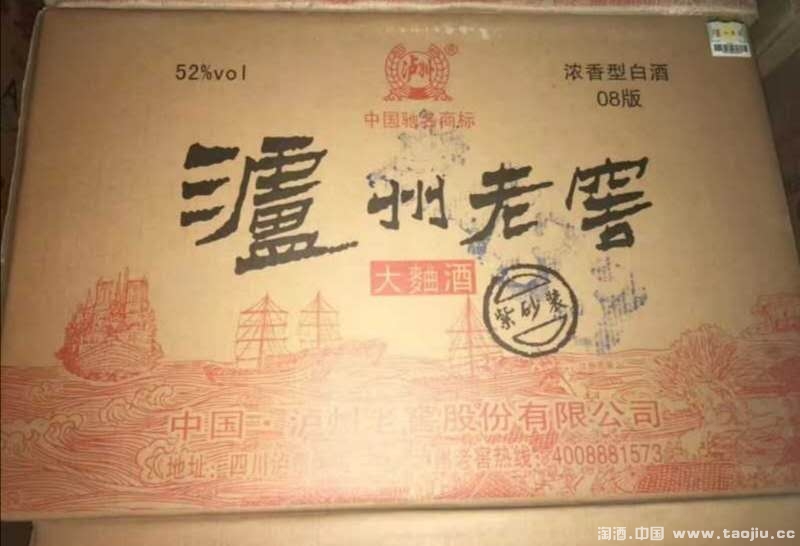 52%vol
泸州
®
浓香型白酒
08版
中国驰名商标
瀘州老窖
大麯酒
紫砂装
中国·泸州老窖股份有限公司
地址:四川泸
老窖热线:4008881573
淘酒.中国 www.taojiu.cc